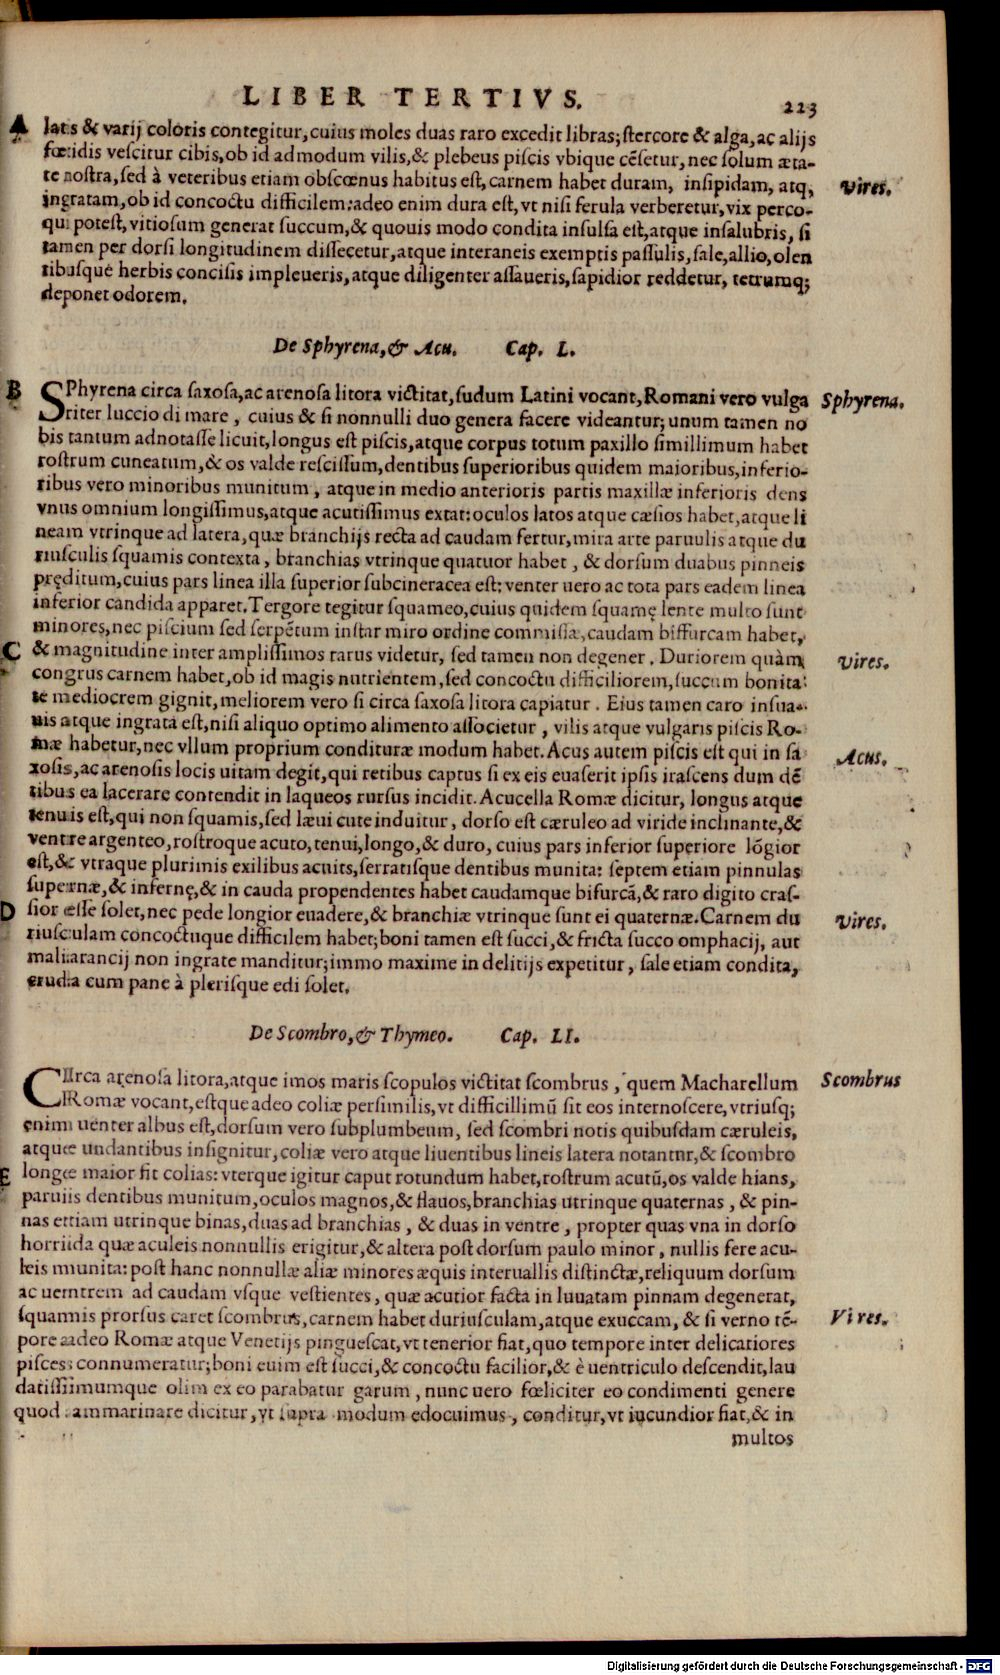 LIBER TERTIVS. 223
A latis & varij coloris contegitur, cuius moles duas raro excedit libras; stercore & alga, ac alijs
fœtidis vescitur cibis, ob id admodum vilis, & plebeus piscis vbique cẽsetur, nec solum æta-
te nostra, sed à veteribus etiam obscœnus habitus est, carnem habet duram, insipidam, atq; Vires.
ingratam, ob id concoctu difficilem: adeo enim dura est, vt nisi ferula verberetur, vix perco-
qui potest, vitiosum generat succum, & quouis modo condita insulsa est, atque insalubris, si
tamen per dorsi longitudinem dissecetur, atque interaneis exemptis passulis, sale, allio, olen
tibusque herbis concisis impleueris, atque diligenter assaueris, sapidior reddetur, tetrumq;
deponet odorem.
De Sphyrena, & Acu. Cap. L.
B SPhyrena circa saxosa, ac arenosa litora victitat, sudum Latini vocant, Romani vero vulga Sphyrena.
riter luccio di mare, cuius & si nonnulli duo genera facere videantur; unum tamen no
bis tantum adnotasse licuit, longus est piscis, atque corpus totum paxillo simillimum habet
rostrum cuneatum, & os valde rescissum, dentibus superioribus quidem maioribus, inferio-
ribus vero minoribus munitum, atque in medio anterioris partis maxillæ inferioris dens
vnus omnium longissimus, atque acutissimus extat: oculos latos atque cæsios habet, atque li
neam vtrinque ad latera, quæ branchijs recta ad caudam fertur, mira arte paruulis atque du
riusculis squamis contexta, branchias vtrinque quatuor habet, & dorsum duabus pinneis
pręditum, cuius pars linea illa superior subcineracea est: venter uero ac tota pars eadem linea
inferior candida apparet. Tergore tegitur squameo, cuius quidem squamę lente multo sunt
minores, nec piscium sed serpẽtum instar miro ordine commissæ, caudam biffurcam habet,
C & magnitudine inter amplissimos rarus videtur, sed tamen non degener. Duriorem quàm Vires.
congrus carnem habet, ob id magis nutrientem, sed concoctu difficiliorem, succum bonita-
te mediocrem gignit, meliorem vero si circa saxosa litora capiatur. Eius tamen caro insua-
uis atque ingrata est, nisi aliquo optimo alimento associetur, vilis atque vulgaris piscis Ro-
mæ habetur, nec vllum proprium condituræ modum habet. Acus autem piscis est qui in sa Acus.
xosis, ac arenosis locis uitam degit, qui retibus captus si ex eis euaserit ipsis irascens dum dẽ
tibus ea lacerare contendit in laqueos rursus incidit. Acucella Romæ dicitur, longus atque
tenuis est, qui non squamis, sed læui cute induitur, dorso est cæruleo ad viride inclinante, &
ventre argenteo, rostroque acuto, tenui, longo, & duro, cuius pars inferior superiore lõgior
est, & vtraque plurimis exilibus acutis, serratisque dentibus munita: septem etiam pinnulas
supernæ, & infernę, & in cauda propendentes habet caudamque bifurcã, & raro digito cras-
D sior esse solet, nec pede longior euadere, & branchiæ vtrinque sunt ei quaternæ. Carnem du Vires.
riusculam concoctuque difficilem habet; boni tamen est succi, & fricta succo omphacij, aut
mali arancij non ingrate manditur; immo maxime in delitijs expetitur, sale etiam condita,
cruda cum pane à plerisque edi solet.
De Scombro, & Thymeo. Cap. LI.
CIrca arenosa litora, atque imos maris scopulos victitat scombrus, quem Macharellum Scombrus
Romæ vocant, estque adeo coliæ persimilis, vt difficillimũ sit eos internoscere, vtriusq;
enim uenter albus est, dorsum vero subplumbeum, sed scombri notis quibusdam cæruleis,
atque undantibus insignitur, coliæ vero atque liuentibus lineis latera notantnr, & scombro
E longe maior fit colias: vterque igitur caput rotundum habet, rostrum acutũ, os valde hians,
paruiis dentibus munitum, oculos magnos, & flauos, branchias utrinque quaternas, & pin-
nas etiam utrinque binas, duas ad branchias, & duas in ventre, propter quas vna in dorso
horrida quæ aculeis nonnullis erigitur, & altera post dorsum paulo minor, nullis fere acu-
leis munita: post hanc nonnullæ aliæ minores æquis interuallis distinctæ, reliquum dorsum
ac uentrem ad caudam vsque vestientes, quæ acutior facta in luuatam pinnam degenerat,
squamis prorsus caret scombrus, carnem habet duriusculam, atque exuccam, & si verno tẽ- Vires.
pore adeo Romæ atque Venetijs pinguescat, vt tenerior fiat, quo tempore inter delicatiores
pisces connumeratur; boni euim est succi, & concoctu facilior, & è uentriculo descendit, lau
datissimumque olim ex eo parabatur garum, nunc uero fœliciter eo condimenti genere
quod ammarinare dicitur, vt supra modum edocuimus, conditur, vt iucundior fiat, & in
multos
Digitalisierung gefördert durch die Deutsche Forschungsgemeinschaft - DFG